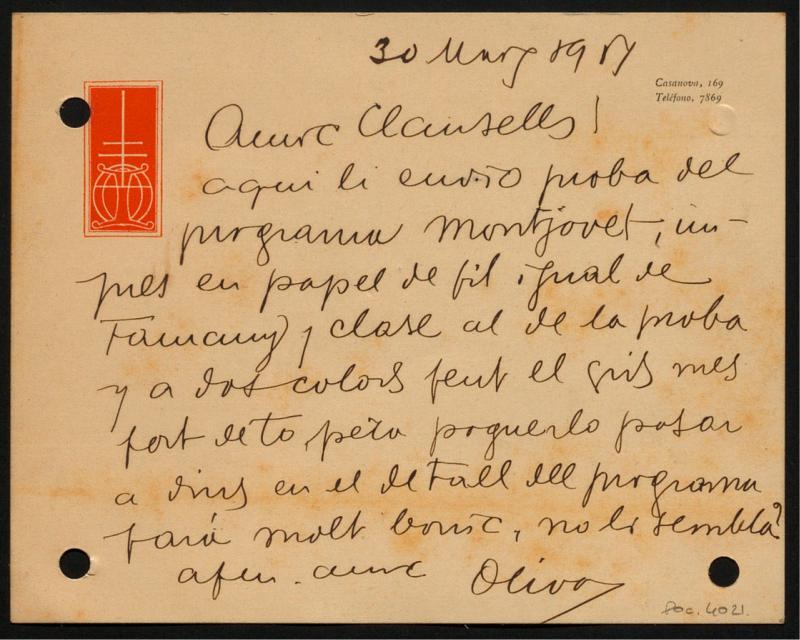 30 Març 1917
Casanova, 169
Teléfono, 7869
Amic Clausells!
aqui li envio proba del
programa Montjovet, im-
pres en papel de fil igual de
Tamany y clase al de la proba
y a dos colors fent el gris mes
fort de to, pera poguerlo posar
a dins en el detall del programa
fará molt bonic, no li sembla?
afm. amic Oliva
Doc. 4021.